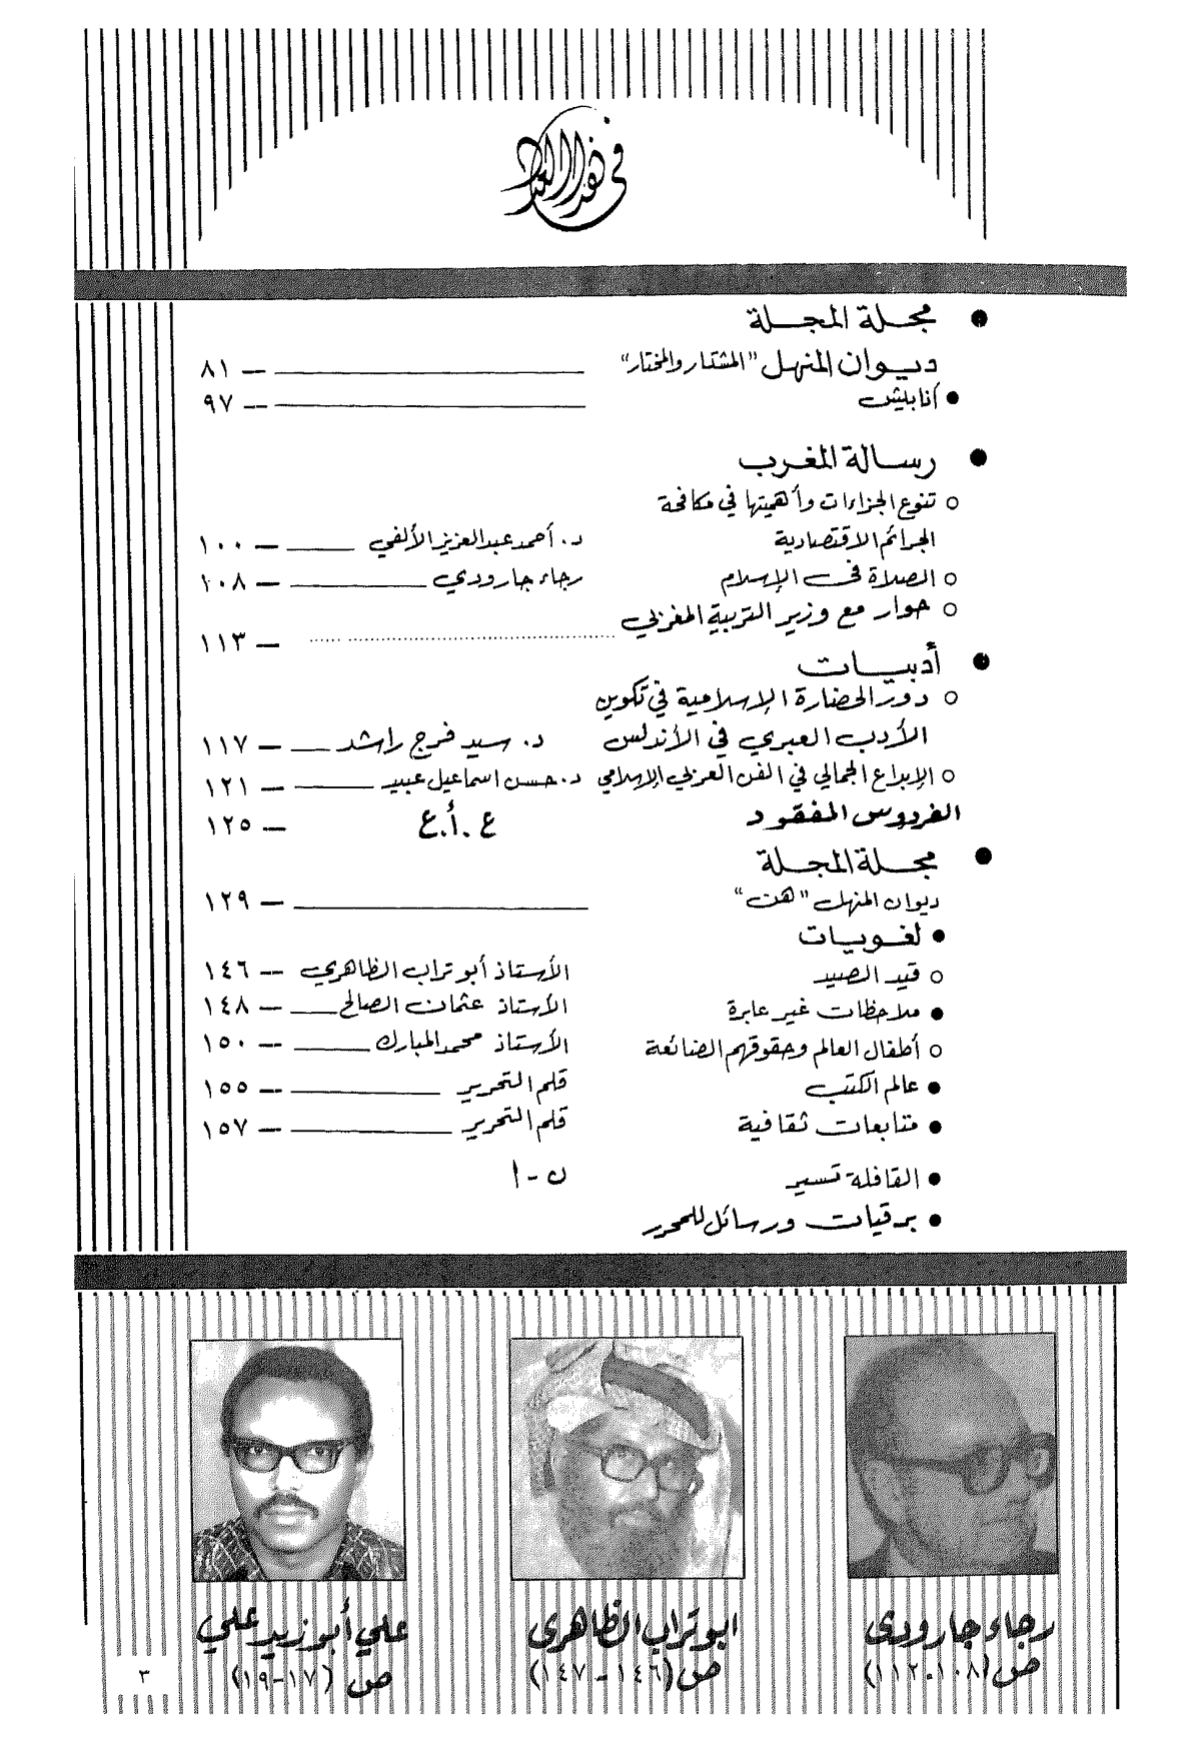 في هذا العدد
● مجلة المجلة
ديوان المنهل "المشتار والمختار" ــ ٨١
● أنابيش ــ ٩٧
● رسالة المغرب
○ تنوع الجزاءات وأهميتها في مكافحة
الجرائم الاقتصادية د. أحمد عبدالعزيز الألفي ــ ١٠٠
○ الصلاة في الإسلام رجاء جارودي ــ ١٠٨
○ حوار مع وزير التربية المغربي ........ ــ ١١٣
● أدبيات
○ دور الحضارة الإسلامية في تكوين
الأدب العبري في الأندلس د. سيد فرج راشد ــ ١١٧
○ الإبداع الجمالي في الفن العربي الإسلامي د. حسن اسماعيل عبيد ــ ١٢١
الفردوس المفقود ع.أ.ع ــ ١٢٥
● مجلة المجلة
ديوان المنهل "هن" ــ ١٢٩
● لغويات
○ قيد الصيد الأستاذ أبو تراب الظاهري ــ ١٤٦
● ملاحظات غير عابرة الأستاذ عثمان الصالح ــ ١٤٨
○ أطفال العالم وحقوقهم الضائعة الأستاذ محمد المبارك ــ ١٥٠
● عالم الكتب قلم التحرير ــ ١٥٥
● متابعات ثقافية قلم التحرير ــ ١٥٧
● القافلة تسير ن - ا
● برقيات ورسائل للمحرر
رجاء جارودى
ص (١٠٨-١١٢)
ابو تراب الظاهرى
ص (١٤٦-١٤٧)
علي أبو زيد علي
ص (١٧-١٩)
٣